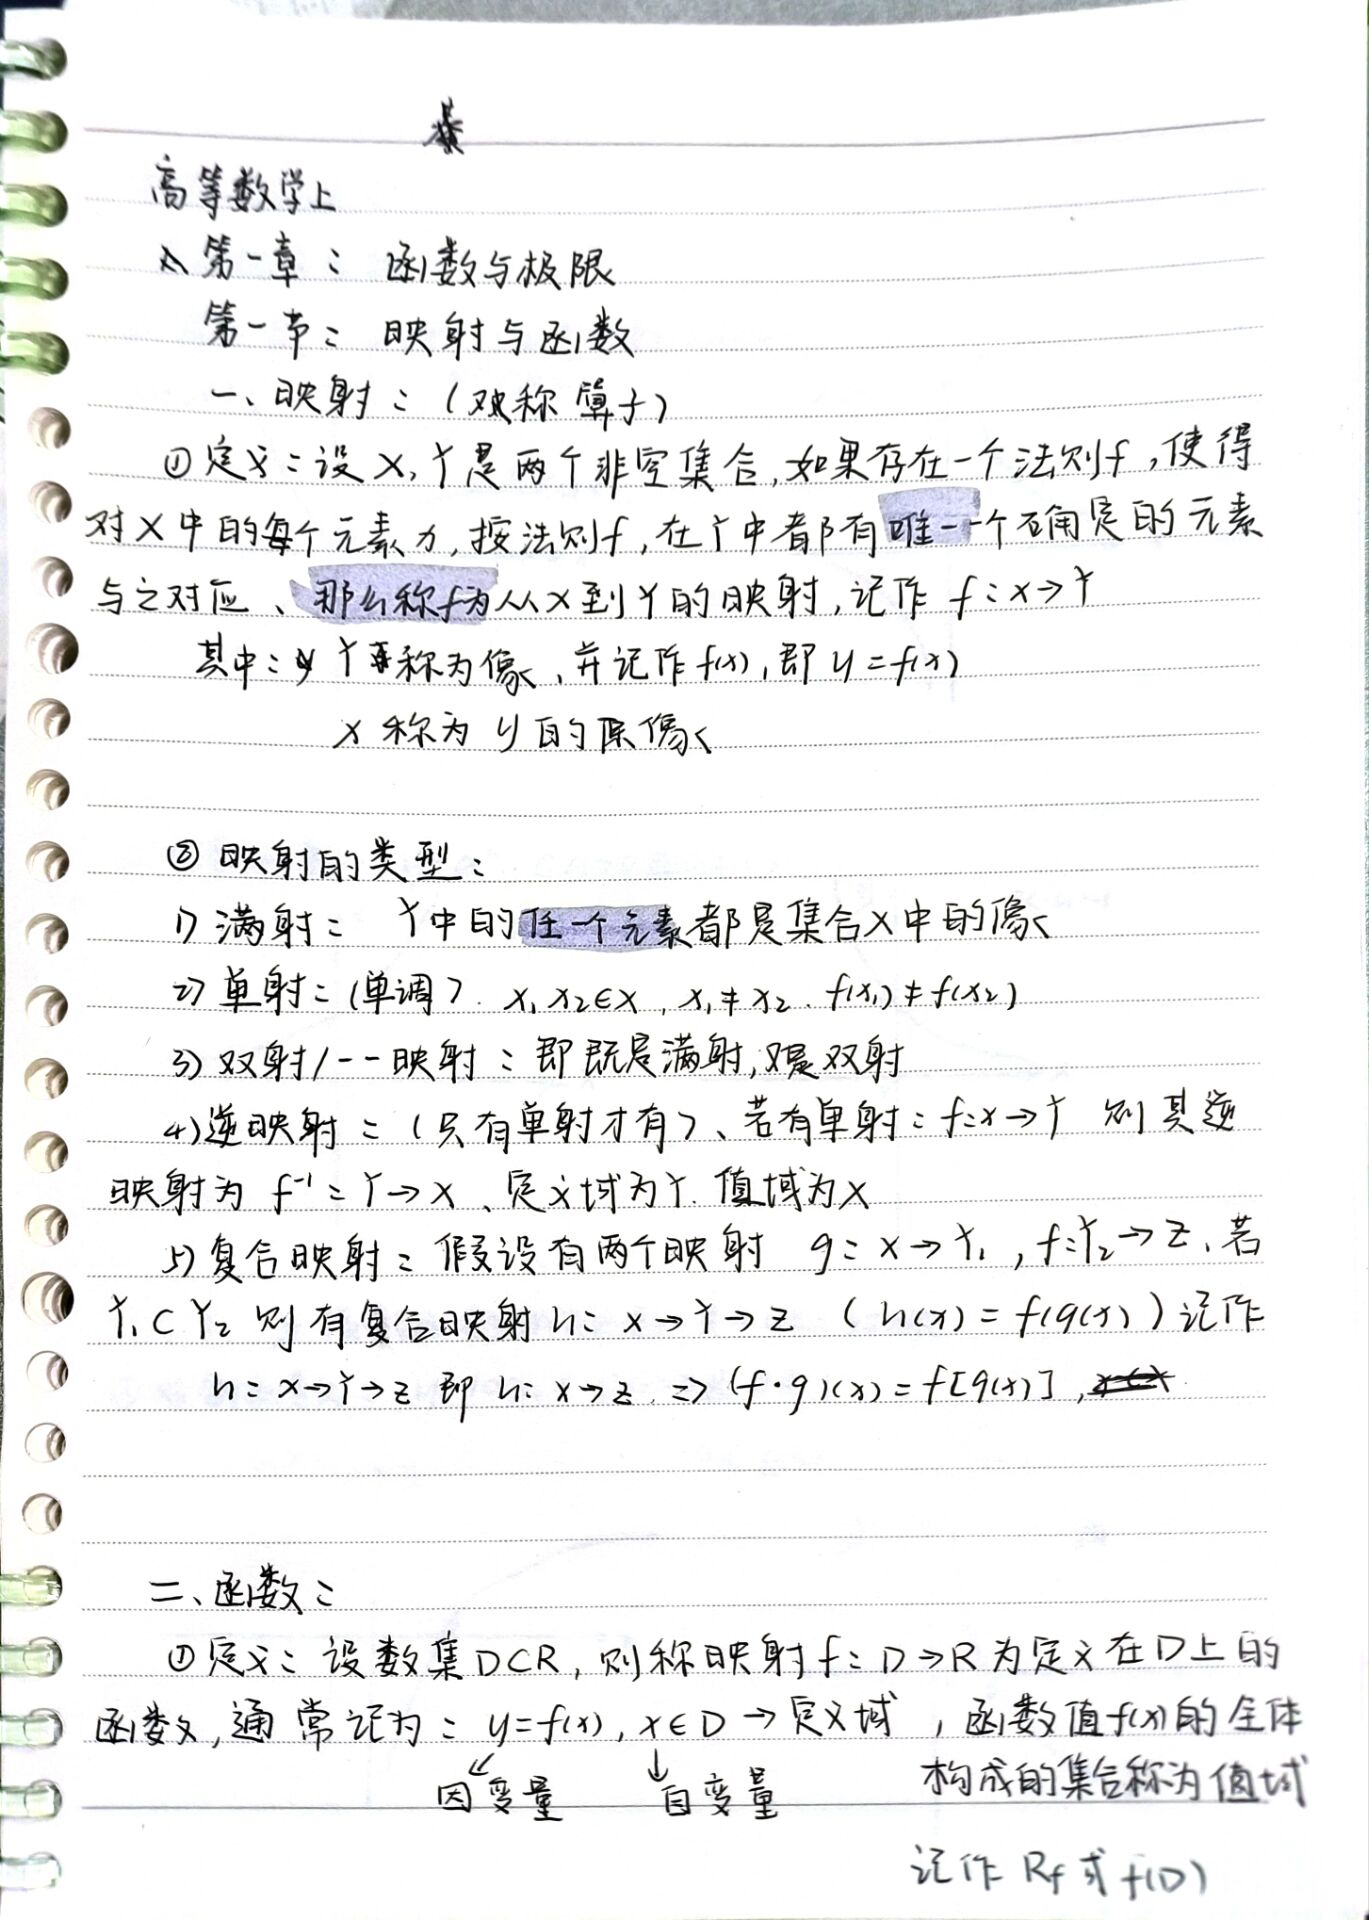 高等数学上
第一章：函数与极限
第一节：映射与函数
一、映射：（又称算子）
①定义：设X,Y是两个非空集合,如果存在一个法则f,使得
对X中的每个元素x,按法则f,在Y中都有唯一一个确定的元素
与之对应、那么称f为从X到Y的映射,记作 f：X→Y
其中：Y称为像、并记作f(x),即 y=f(x)
x 称为 y 的原像
② 映射的类型：
1) 满射： Y中的任一个元素都是集合X中的像
2) 单射：(单调). x₁ x₂∈X , x₁≠x₂ . f(x₁)≠f(x₂)
3) 双射/一一映射：即既是满射,又是双射
4) 逆映射：(只有单射才有)、若有单射：f：X→Y 则其逆
映射为 f⁻¹：Y→X、定义域为Y. 值域为X
5) 复合映射：假设有两个映射 g：X→Y₁ , f：Y₂→Z、若
Y₁⊂Y₂ 则有复合映射h：X→Y→Z (h(x)=f(g(x))记作
h：X→Y→Z 即 h：X→Z. ⇒ (f·g)(x)=f[g(x)] ,
二、函数：
①定义：设数集D⊂R,则称映射f：D→R为定义在D上的
函数,通常记为：y=f(x), x∈D→定义域 , 函数值f(x)的全体
因变量 自变量 构成的集合称为值域
记作 Rf 或 f(D)